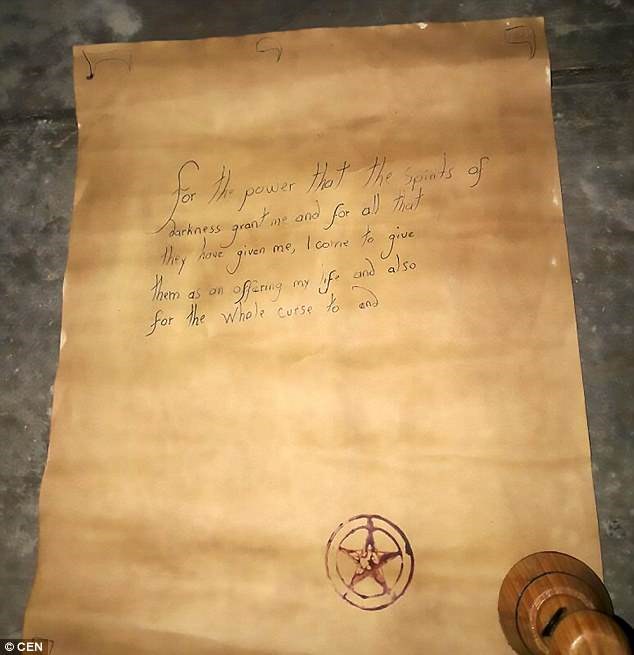 for the power that the spirits of
darkness grant me and for all that
they have given me, I come to give
them as an offering my life and also
for the whole curse to end
© CEN